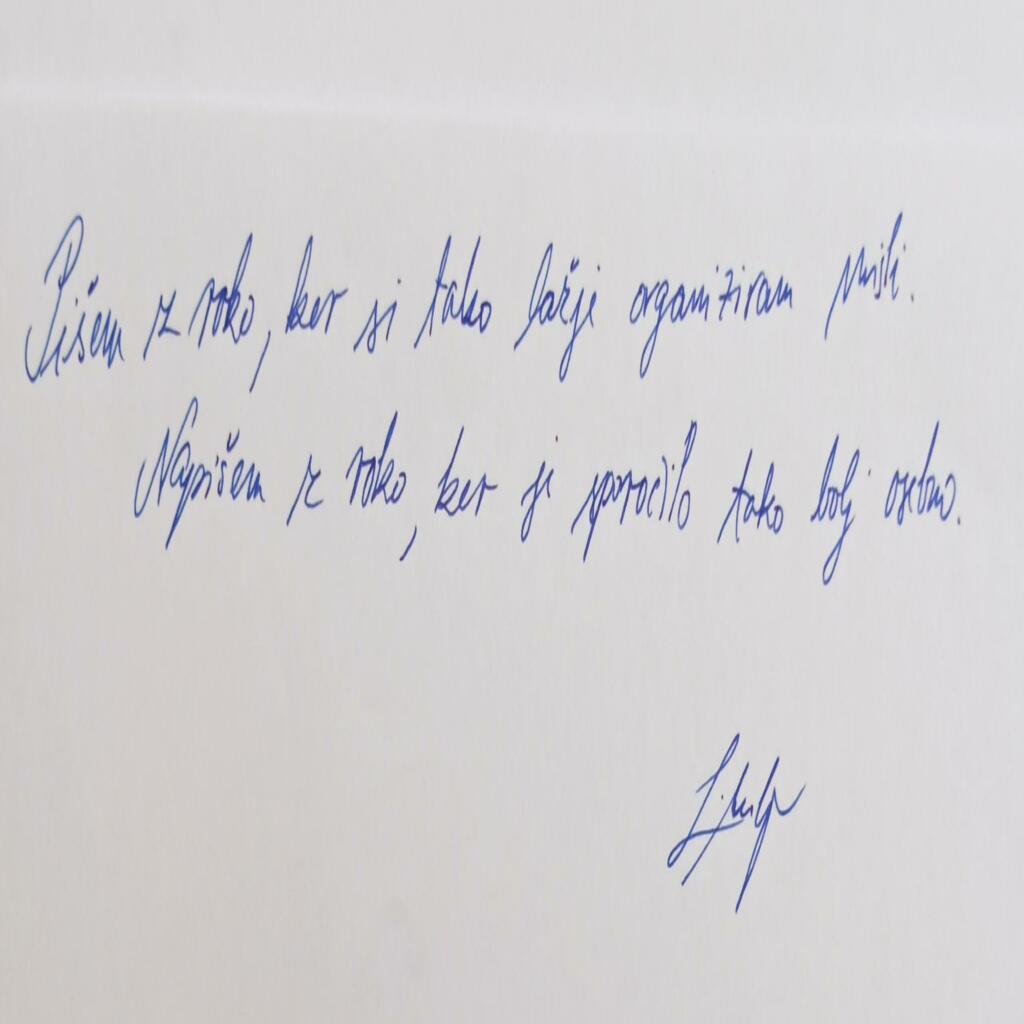 Pišem z roko, ker si tako lažje organiziram misli.
Napišem z roko, ker je sporočilo tako bolj osebno.